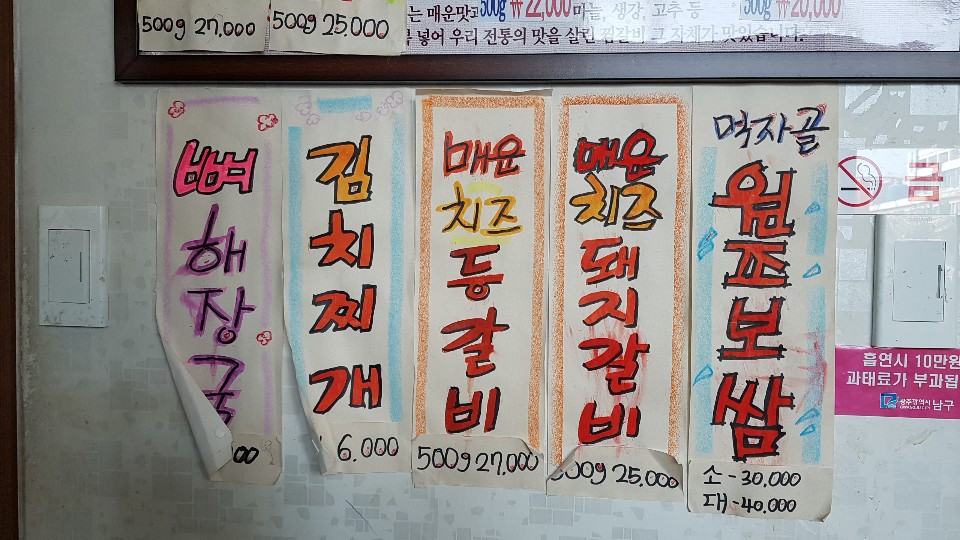 500g 27,000
500g 25,000
는 매운맛
500g ₩22,000
마늘, 생강, 고추 등
500g ₩20,000
넣어 우리 전통의 맛을 살린 찜갈비 그 자체가 맛있습니다.
뼈해장국
00
김치찌개
6.000
매운
치즈
등갈비
500g 27,000
매운
치즈
돼지갈비
500g 25,000
먹자골
원조보쌈
소-30,000
대-40,000
금
흡연시 10만원
과태료가 부과됩
광주광역시 남구